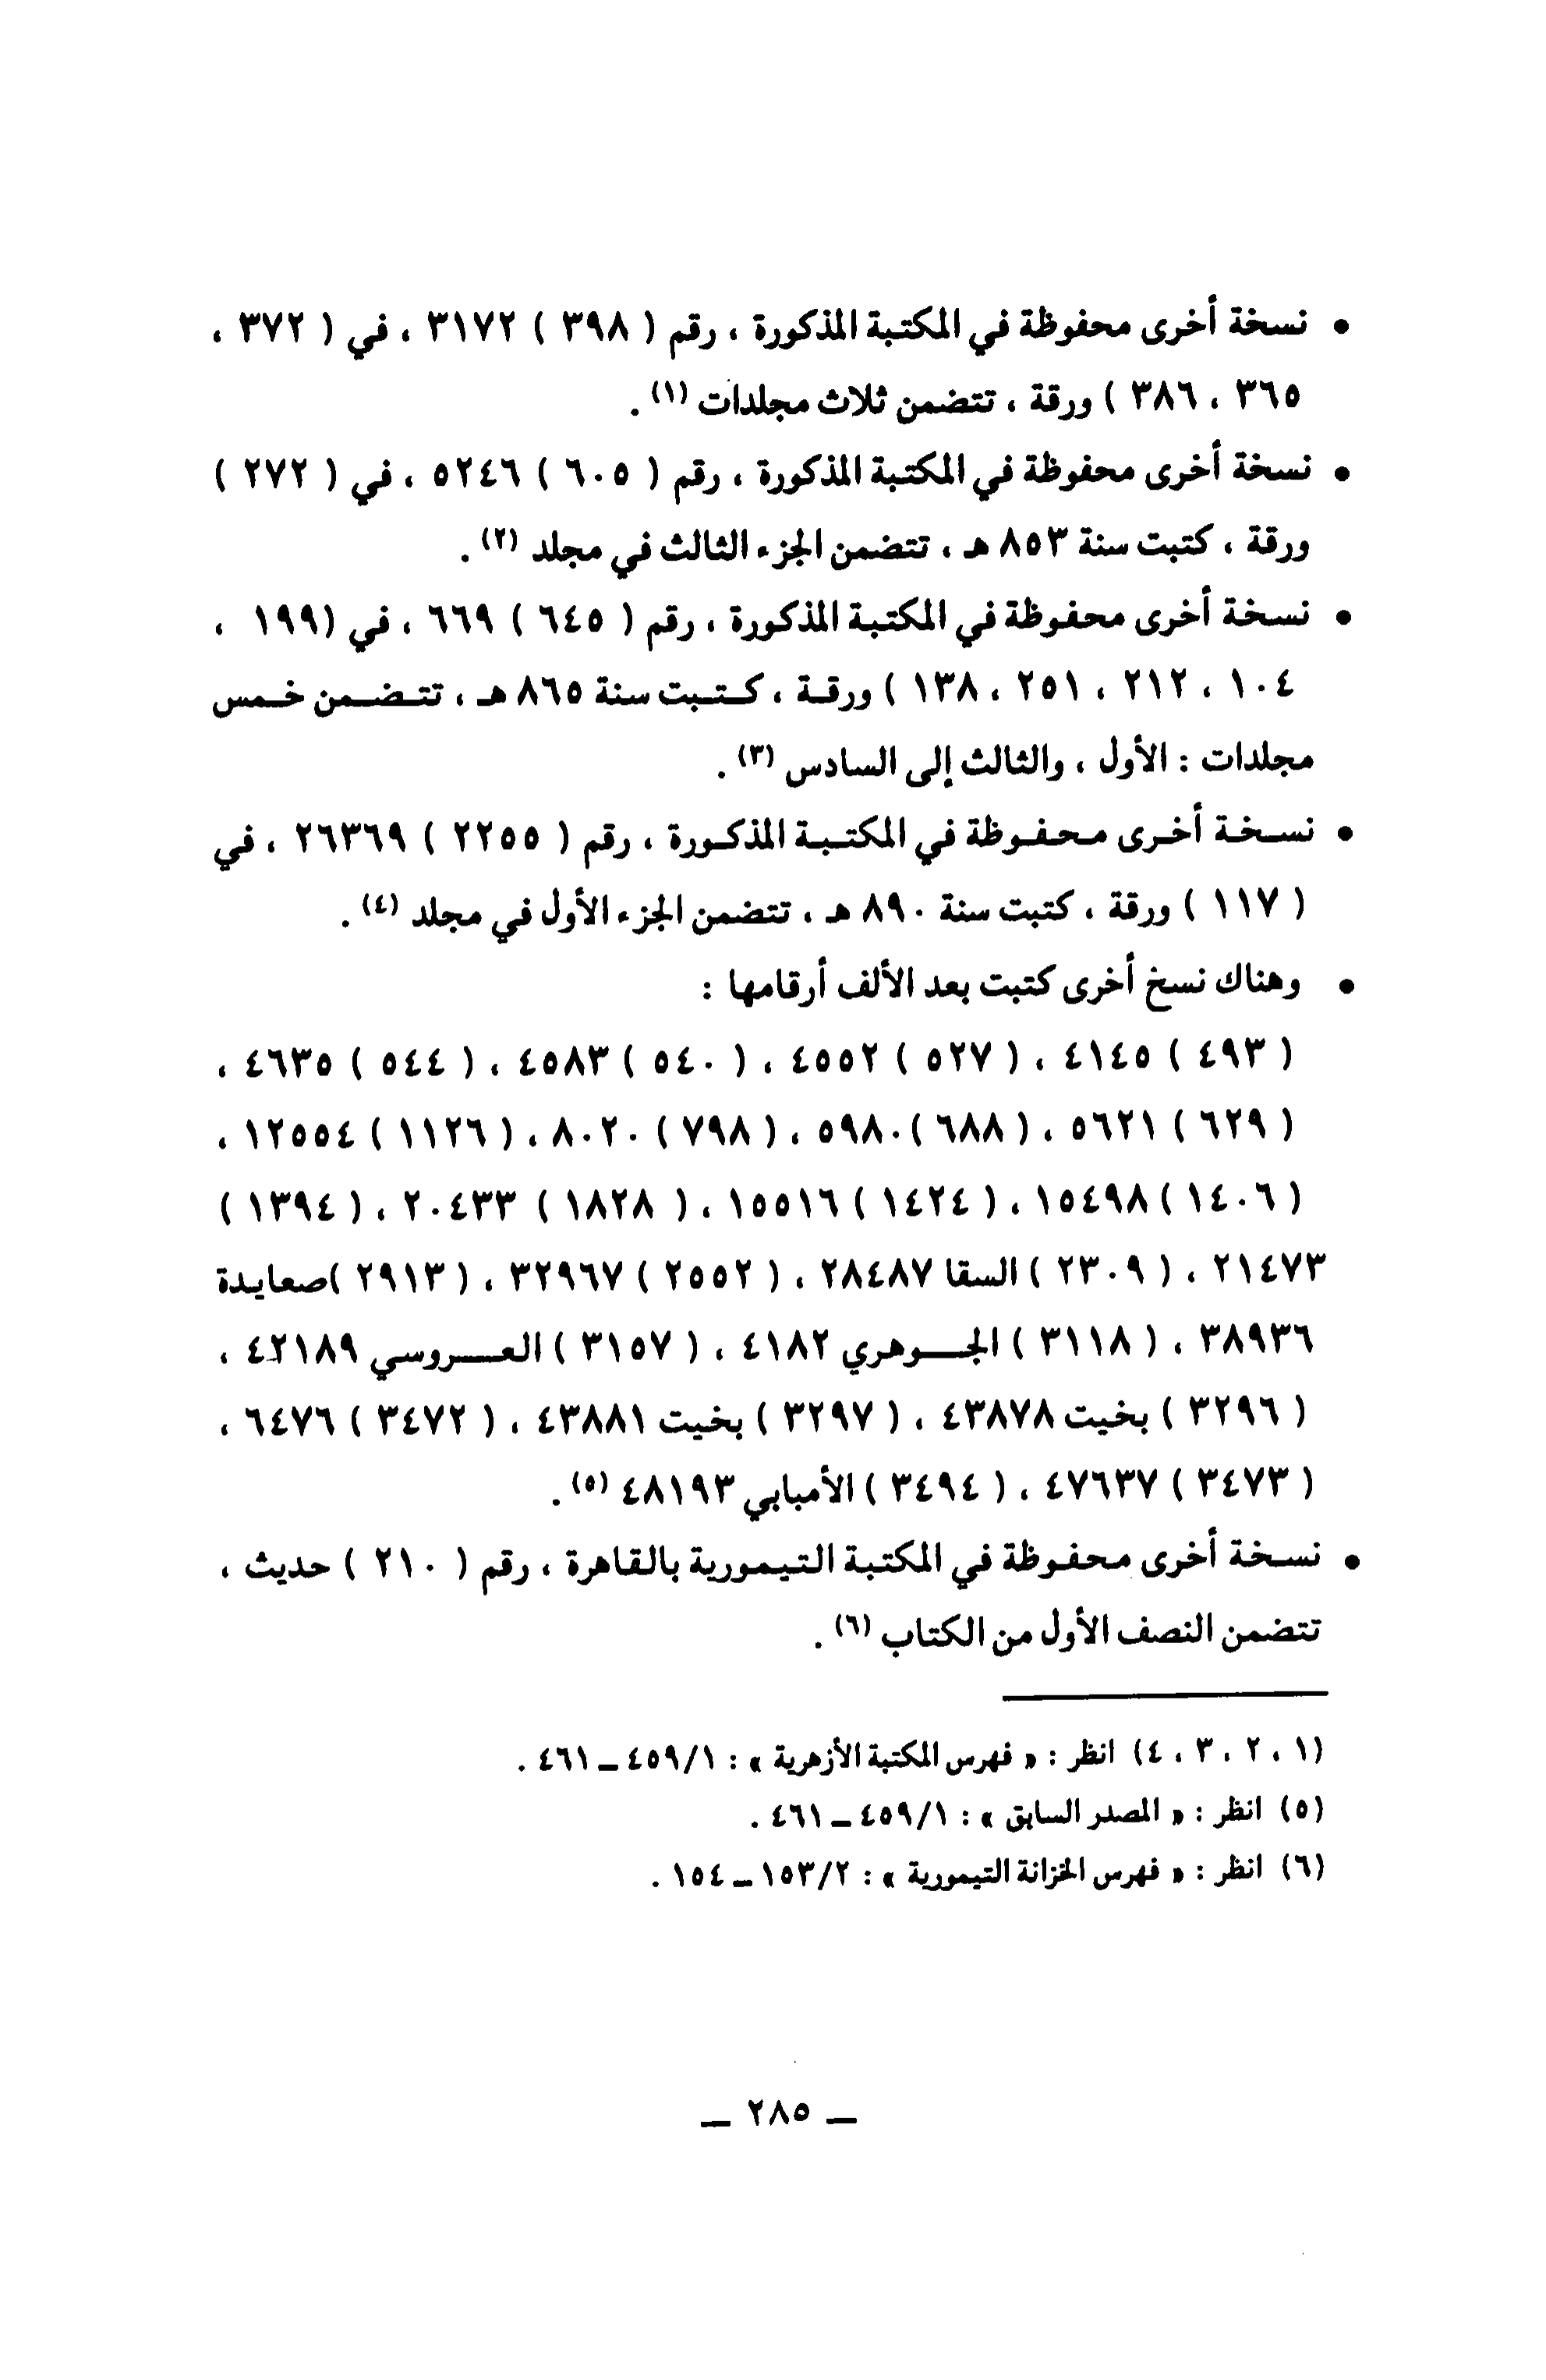 • نسخة أخرى محفوظة في المكتبة المذكورة ، رقم ( ٣٩٨ ) ٣١٧٢ ، في ( ٣٧٢ ،
٣٦٥ ، ٣٨٦ ) ورقة ، تتضمن ثلاث مجلدات (١) .
• نسخة أخرى محفوظة في المكتبة المذكورة ، رقم ( ٦٠٥ ) ٥٢٤٦ ، في ( ٢٧٢ )
ورقة ، كتبت سنة ٨٥٣ هـ ، تتضمن الجزء الثالث في مجلد (٢) .
• نسخة أخرى محفوظة في المكتبة المذكورة ، رقم ( ٦٤٥ ) ٦٦٩ ، في (١٩٩ ،
١٠٤ ، ٢١٢ ، ٢٥١ ، ١٣٨ ) ورقة ، كتبت سنة ٨٦٥ هـ ، تتضمن خمس
مجلدات : الأول ، والثالث إلى السادس (٣) .
• نسخة أخرى محفوظة في المكتبة المذكورة ، رقم ( ٢٢٥٥ ) ٢٦٣٦٩ ، في
( ١١٧ ) ورقة ، كتبت سنة ٨٩٠ هـ ، تتضمن الجزء الأول في مجلد (٤) .
• وهناك نسخ أخرى كتبت بعد الألف أرقامها :
( ٤٩٣ ) ٤١٤٥ ، ( ٥٢٧ ) ٤٥٥٢ ، ( ٥٤٠ ) ٤٥٨٣ ، ( ٥٤٤ ) ٤٦٣٥ ،
( ٦٢٩ ) ٥٦٢١ ، ( ٦٨٨ ) ٥٩٨٠ ، ( ٧٩٨ ) ٨٠٢٠ ، ( ١١٢٦ ) ١٢٥٥٤ ،
( ١٤٠٦ ) ١٥٤٩٨ ، ( ١٤٢٤ ) ١٥٥١٦ ، ( ١٨٢٨ ) ٢٠٤٣٣ ، ( ١٣٩٤ )
٢١٤٧٣ ، ( ٢٣٠٩ ) السقا ٢٨٤٨٧ ، ( ٢٥٥٢ ) ٣٢٩٦٧ ، ( ٢٩١٣ )صعايدة
٣٨٩٣٦ ، ( ٣١١٨ ) الجوهري ٤١٨٢ ، ( ٣١٥٧ ) العروسي ٤٢١٨٩ ،
( ٣٢٩٦ ) بخيت ٤٣٨٧٨ ، ( ٣٢٩٧ ) بخيت ٤٣٨٨١ ، ( ٣٤٧٢ ) ٦٤٧٦ ،
( ٣٤٧٣ ) ٤٧٦٣٧ ، ( ٣٤٩٤ ) الأمبابي ٤٨١٩٣ (٥) .
• نسخة أخرى محفوظة في المكتبة التيمورية بالقاهرة ، رقم ( ٢١٠ ) حديث ،
تتضمن النصف الأول من الكتاب (٦) .
(١ ، ٢ ، ٣ ، ٤) انظر : « فهرس المكتبة الأزهرية » : ٤٥٩/١ ـ ٤٦١ .
(٥) انظر : « المصدر السابق » : ٤٥٩/١ ـ ٤٦١ .
(٦) انظر : « فهرس الخزانة التيمورية » : ١٥٣/٢ ـ ١٥٤ .
ـ ٢٨٥ ـ